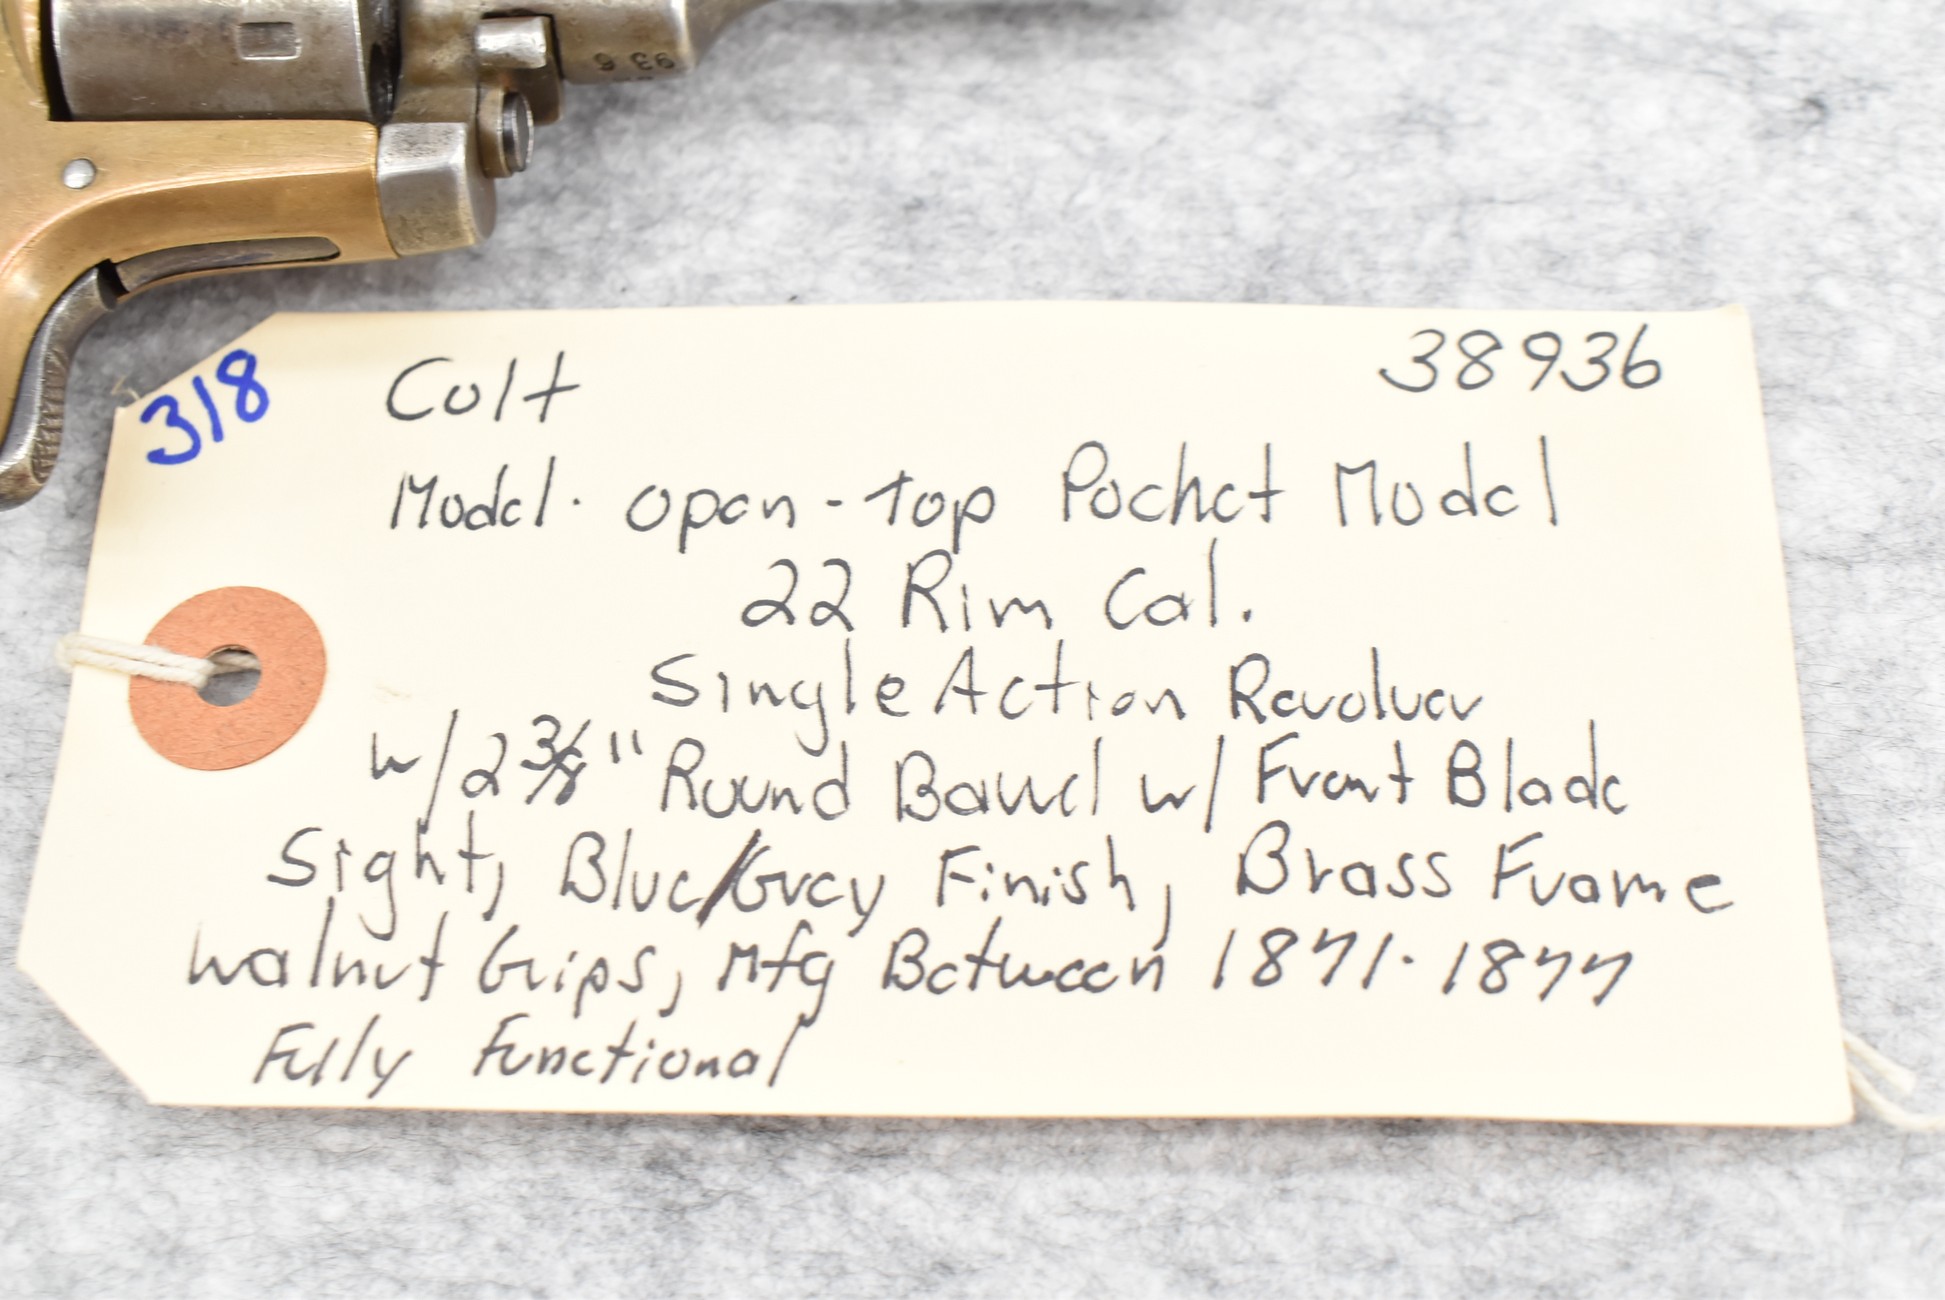 93 6
318
Colt 38936
Model. Open-Top Pocket Model
22 Rim Cal.
Single Action Revolver
w/ 2 3/8" Round Barrel w/ Front Blade
Sight, Blue/Grey Finish, Brass Frame
Walnut Grips, Mfg Between 1871-1877
Fully Functional